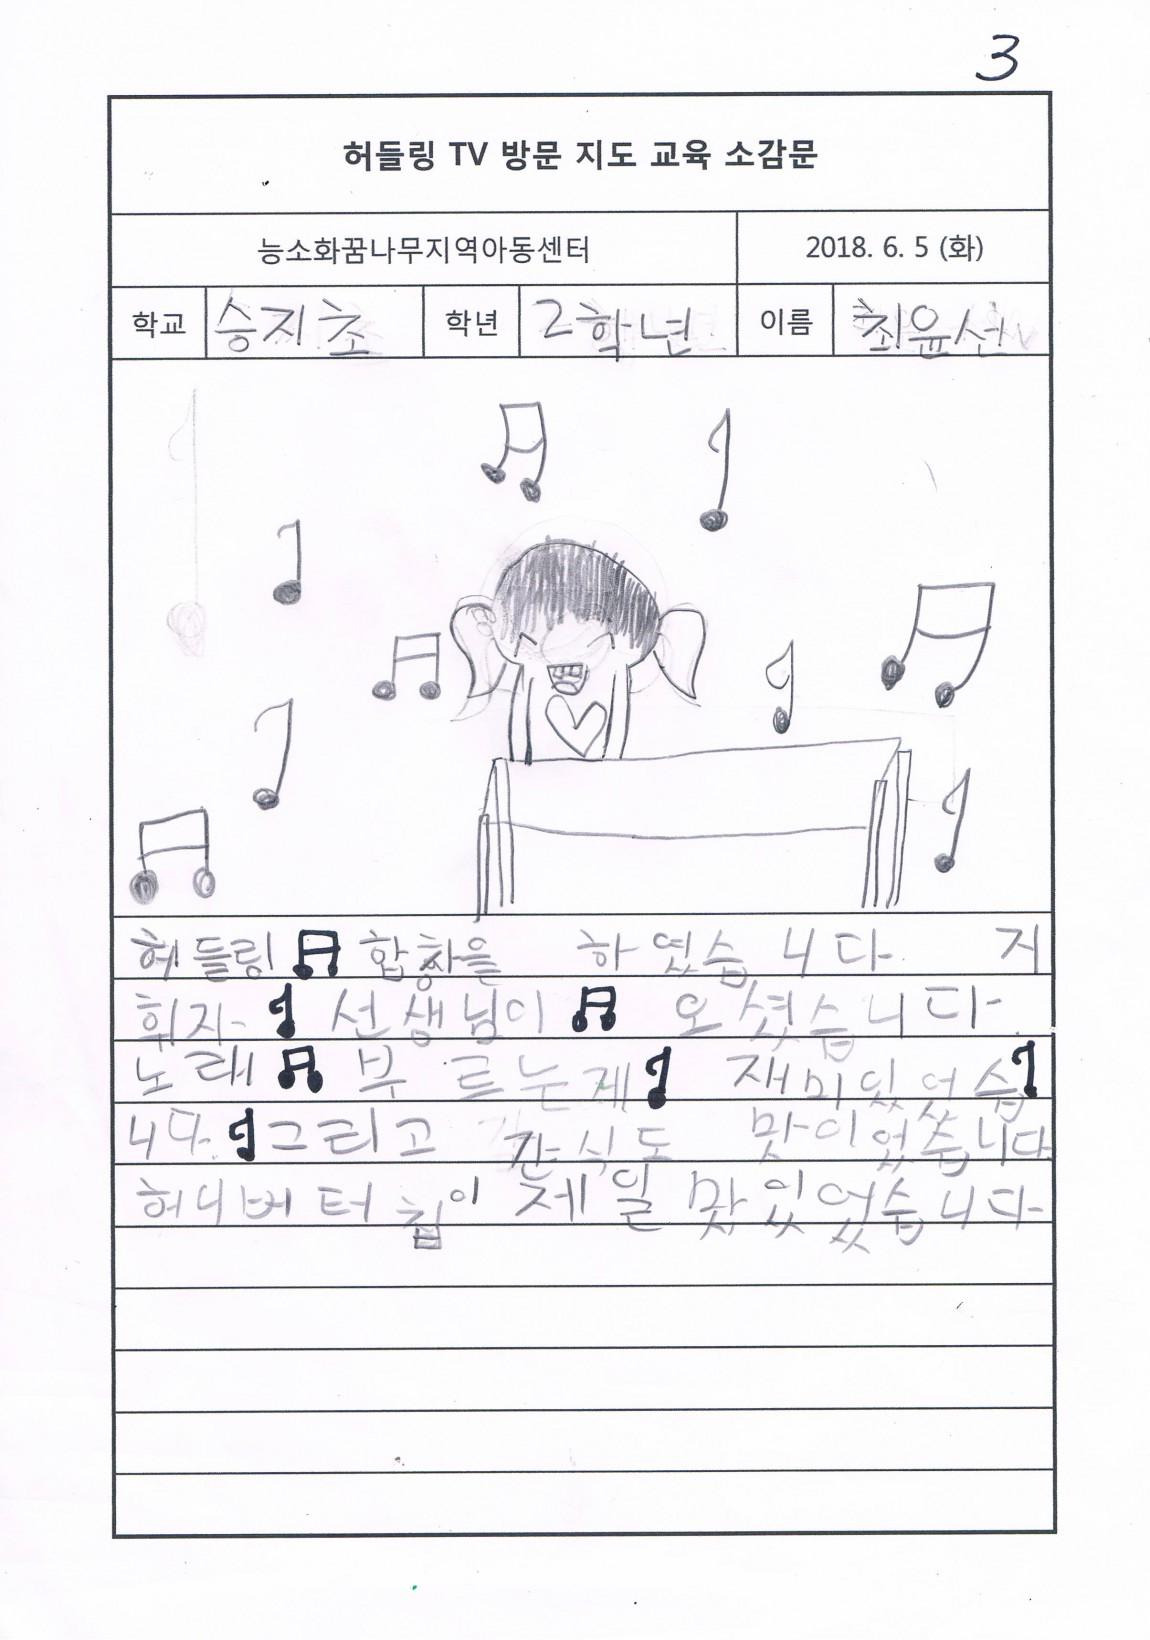 3
허들링 TV 방문 지도 교육 소감문
능소화꿈나무지역아동센터 2018. 6. 5 (화)
학교 승지초 학년 2학년 이름 최윤선
허들링 합창을 하였습니다. 지
휘자 선생님이 오셨습니다.
노래 부르는제 재미있었습
니다. 그리고 간식도 맛이었습니다
허니버터칩이 제일 맛있었습니다